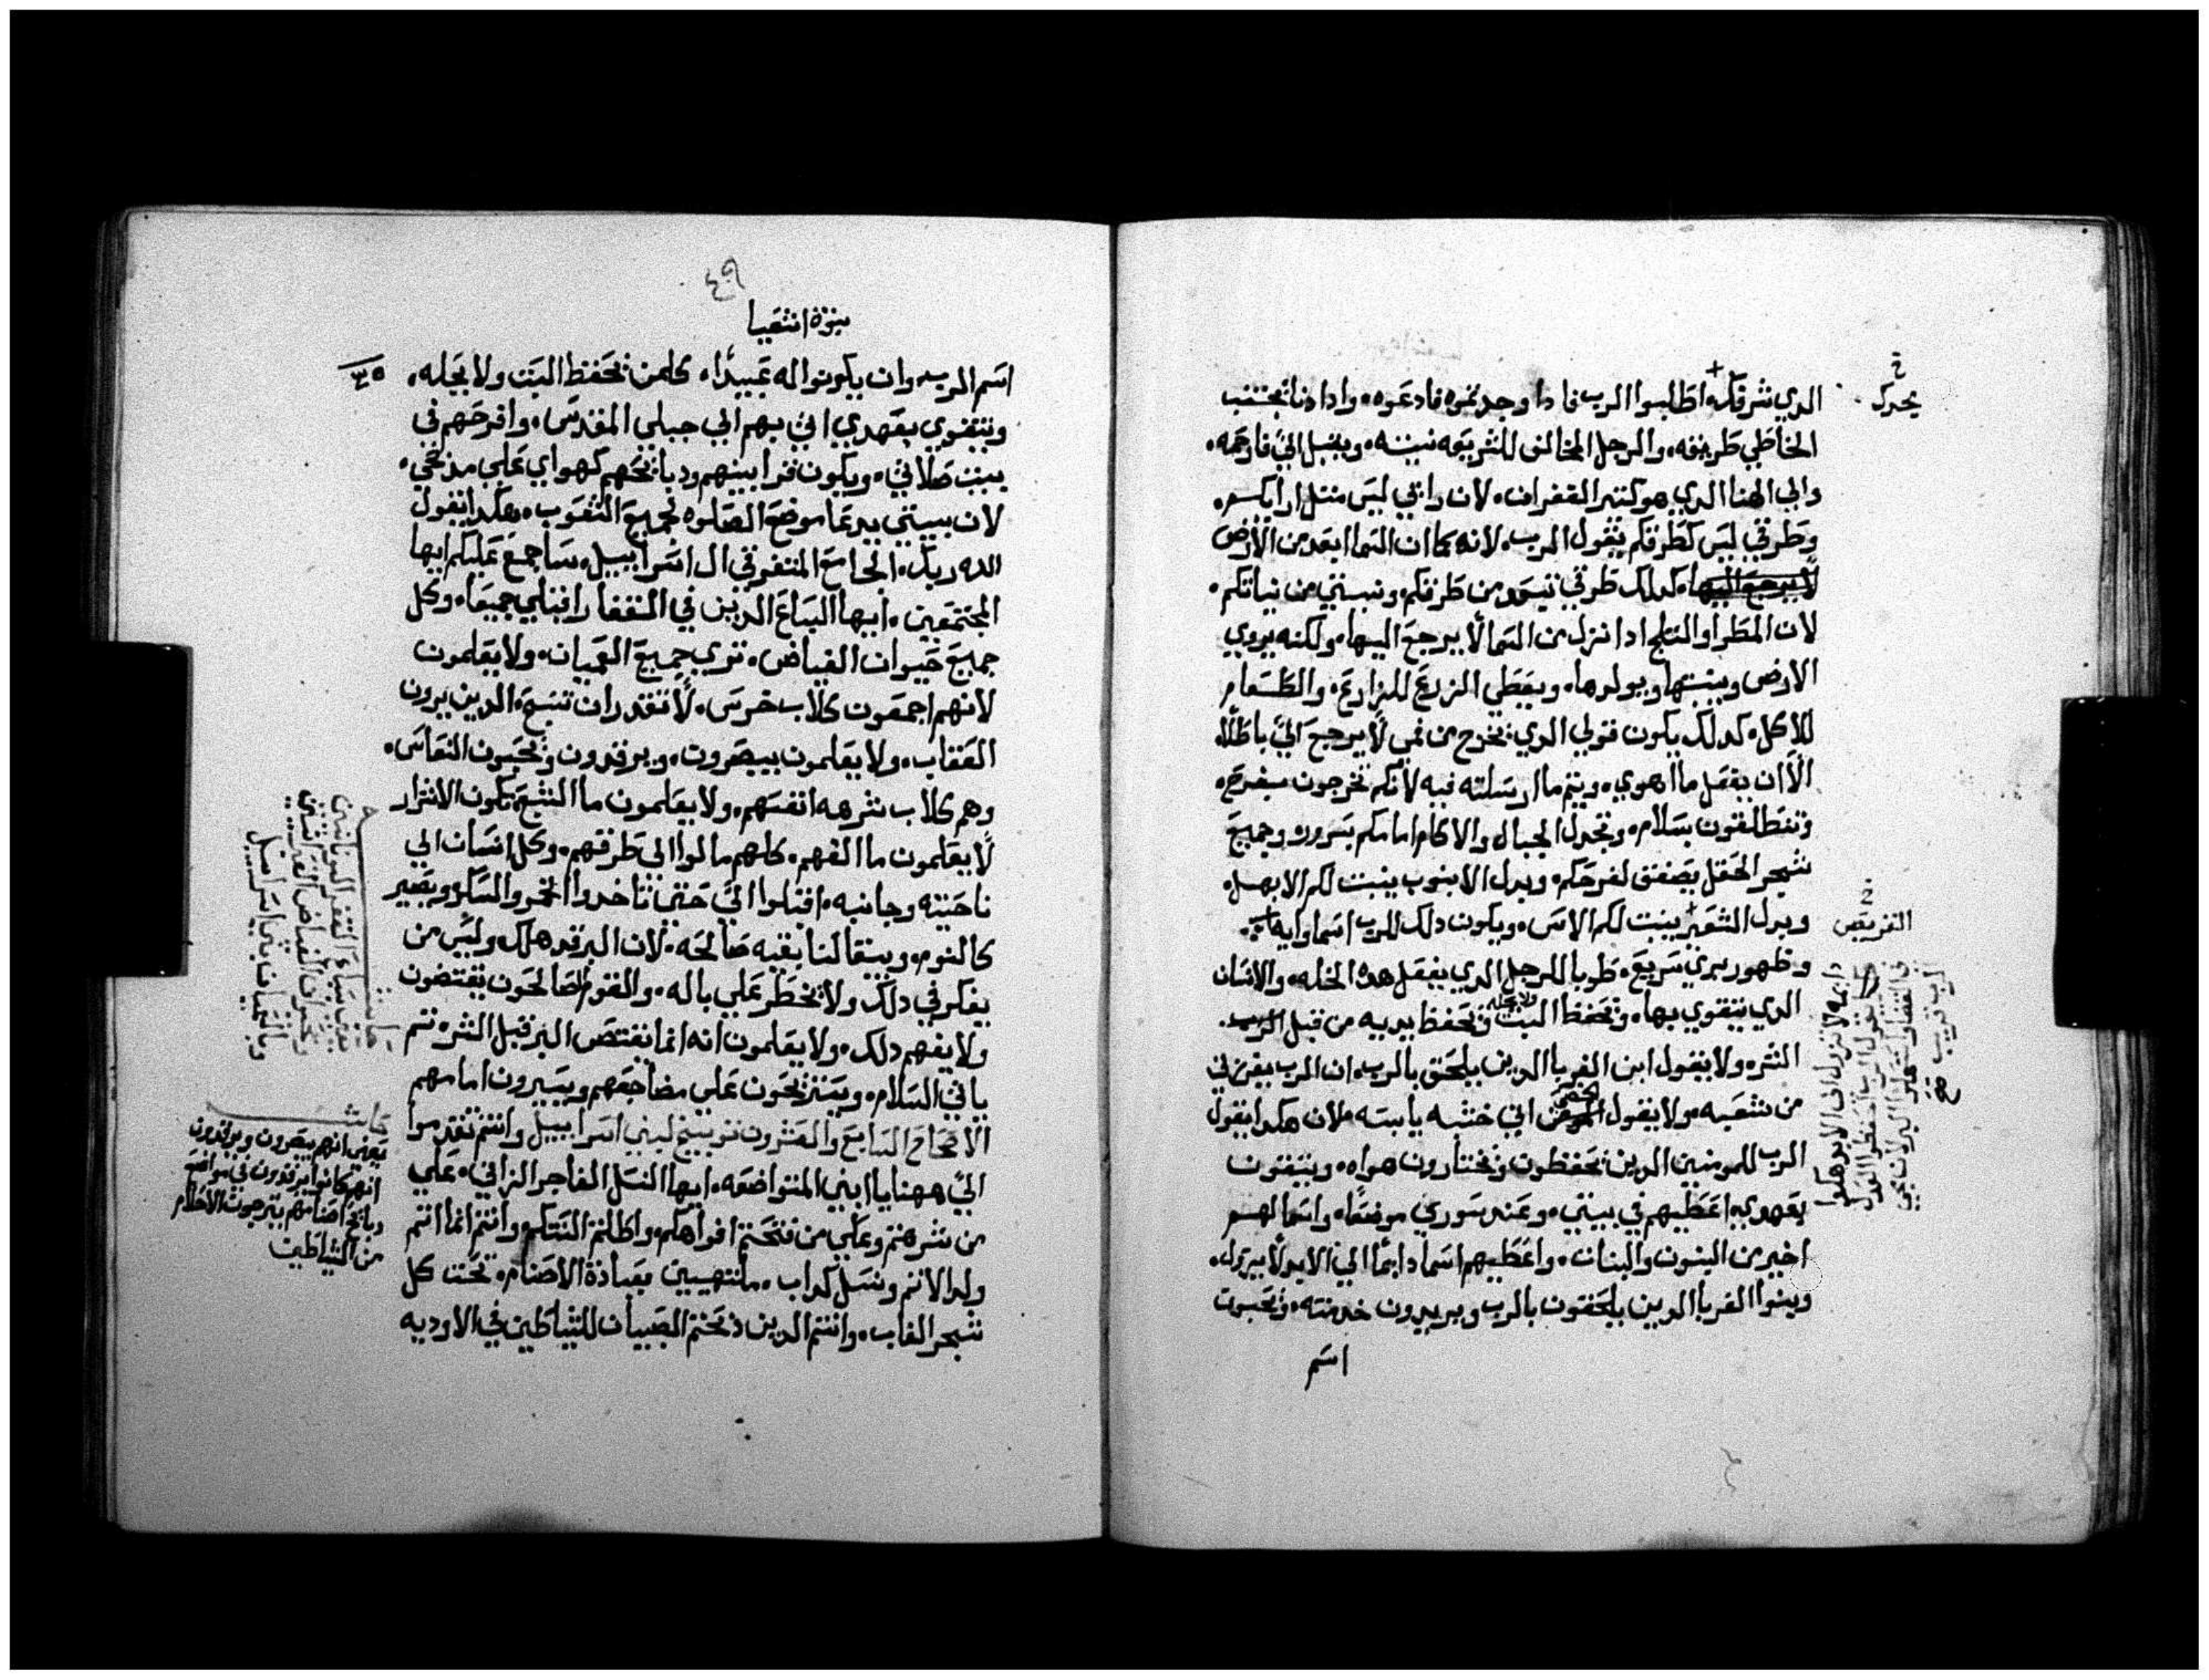 الدي شرفك، اطلبوا الرب فادا وجدتموه فادعوه، وادا دنا يجتنب
الخاطي طريقه، والرجل المخالف للشريعه نيته، ويقبل الي فارحمه،
والي الهنا الدي هو كتير الغفران، لان راىي ليس متل ارايكم
وطرقي ليس كطرقكم يقول الرب، لانه كما ان السما ابعد من الارض
لا يرجع اليها، كدلك طرقي تبعد من طرقكم ونيتي من نياتكم،
لان المطر او التلج ادا نزل من السما لا يرجع اليها، ولكنه يروي
الارض وينبتها ويولدها، ويعطي الزرع للزارع، والطعام
للاكل، كدلك يكون قولي الدي يخرج من فمي لا يرجع الي باطلا،
الا ان يفعل ما اهوي، ويتم ما ارسلته فيه لانكم تخرجون بفرح،
وتنطلقون بسلام، وتجدل الجبال والاكام امامكم بسرور، وجميع
شجر الحقل يصفق لفرحكم، وبدل الابنوب ينبت لكم الابهل،
وبدل الشعير ينبت لكم الاس، ويكون دلك للرب اسما وايه
وظهور بري سريع، طوبا للرجل الدي يفعل هده الخله، والانسان
الدي يتقوي بها، ويحفظ السبت ولا يحله ويحفظ يديه من قبل
الشره ولا يقول ابن الغربا الدين يلحق بالرب، ان الرب يفرزني
من شعبه، ولا يقول الخصي اني خشبه يابسه، لان هكدا يقول
الرب للمومنين الدين يحفظون ويختارون هواه، ويتقون
بعهودي، اعطيهم في بيتي، وعند سوري موضعا، واسما لهم
اخير من البنون والبنات، واعطيهم اسما دايما الي الابد لا يزول،
وبنوا الغربا الدين يلحقون بالرب ويريدون خدمته، ويحبون
اسم
يجدل
التفريص
٤٩
نبوة اشعيا
اسم الرب، وان يكونوا له عبيدا، كلمن يحفظ السبت ولا يحله،
ويتقوي بعهدي اتي بهم الي جبلي المقدس، وافرحهم في
بيت صلاتي، ويكون قرابينهم ودبايحهم كهواي علي مدبحي،
لان بيتي يدعا موضع الصلوه لجميع الشعوب، هكدا يقول
الله ربك، الجامع المتفرقي ال اسراييل، ساجمع عليكم ايها
المجتمعين، ايها السباع الدين في القفار اقبلي جميعا، وكل
جميع حيوان الغياض، تري جميع العميان، ولا يعلمون
لانهم اجمعون كلاب خرس، لا تقدر ان تنبح، الدين يرون
العقاب، ولا يعلمون يبصرون، ويرقدون ويحبون النعاس،
وهم كلاب شرهه انفسهم، ولا يعلمون ما الشبع تكون الاشرار
لا يعلمون ما الفهم، كلهم مالوا الي طرقهم، وكل انسان الي
ناحيته وجانبه، اقبلوا الي حتي تاخدوا الخمر والسكر ويصير
كاليوم، ويبقا لنا بقيه صالحه، لان البر قد هلك وليس من
يفكر في دلك ولا يخطر علي باله، والقوم الصالحون يقتضون
ولا يفهم دلك، ولا يعلمون انه انما يقتص البر قبل الشر، تم
ياتي السلام، ويستريحون علي مضاجعهم ويسيرون امامهم
الاصحاح السابع والعشرون توبيخ لبني اسراييل وانتم تقدموا
الي ههنا يا ابني المتواضعه، ايها النسل الفاجر الزاني، علي
من شرهتم وعلي من فتحتم افواهكم، واطلتم السنتكم، وانتم انما انتم
ولد الاتم ونسل كداب، ملتهبين بعبادة الاصنام، تحت كل
شجر الغاب، وانتم الدين دبحتم الصبيان للشياطين في الاوديه
يعني انهم يبصرون ويرقدون
انهم كانوا يرقدون في مواضع
دبايح اصنامهم يترجون الاحلام
من الشياطين